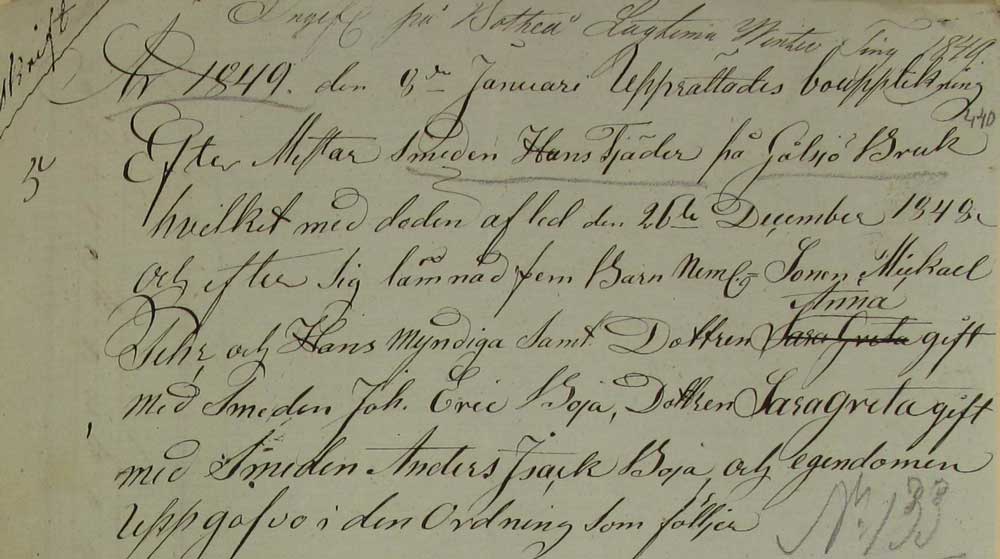 Ingifv. på Botheå Lagtima Winter Ting 1849.
År 1849. den 8de Januari Upprättades bouppteckning
440
Efter Mestar Smeden Hans Tjäder på Gålsjö Bruk
5
hvilket med döden afled den 26te December 1848
och efter sig lämnad fem Barn Neml. Sonen, Mickael
Anna
Pehr, och Hans Myndiga Samt Dottren Sara Greta gift
med Smeden Joh. Eric Boja, Dottren Saragreta gift
med Smeden Anders Isack Boja, och egendomen
Uppgafvo i den Ordning Som följer
No 133